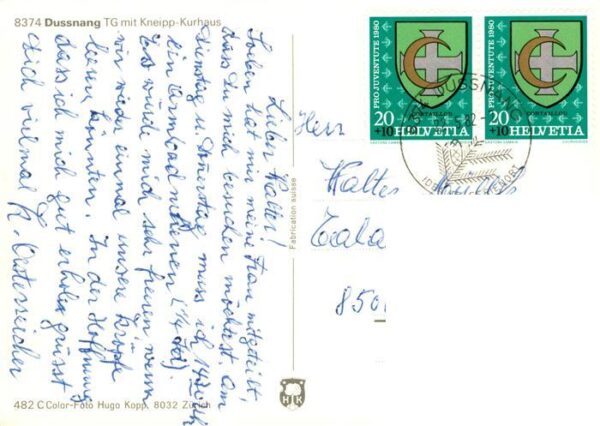 8374 Dussnang TG mit Kneipp-Kurhaus
Lieber Walter!
Soeben hat mir meine Frau mitgeteilt,
dass Du mich besuchen möchtest am
Dienstag. Dienstag muss ich 14 Uhr
ein bad nehmen (¼ Std).
Es würde mich sehr freuen wenn
wir wieder einmal unsere Köpfe
leeren könnten. In der Hoffnung
dass ich mich gut erhole grüsst
Dich vielmal R. Oesterreicher
482 C Color-Foto Hugo Kopp, 8032 Zürich
Fabrication suisse
HK
PRO JUVENTUTE 1980
CORTAILLOD
20
+10 HELVETIA
PRO JUVENTUTE 1980
CORTAILLOD
20
+10 HELVETIA
DUSSNANG
Herr
Walter
Tala
850